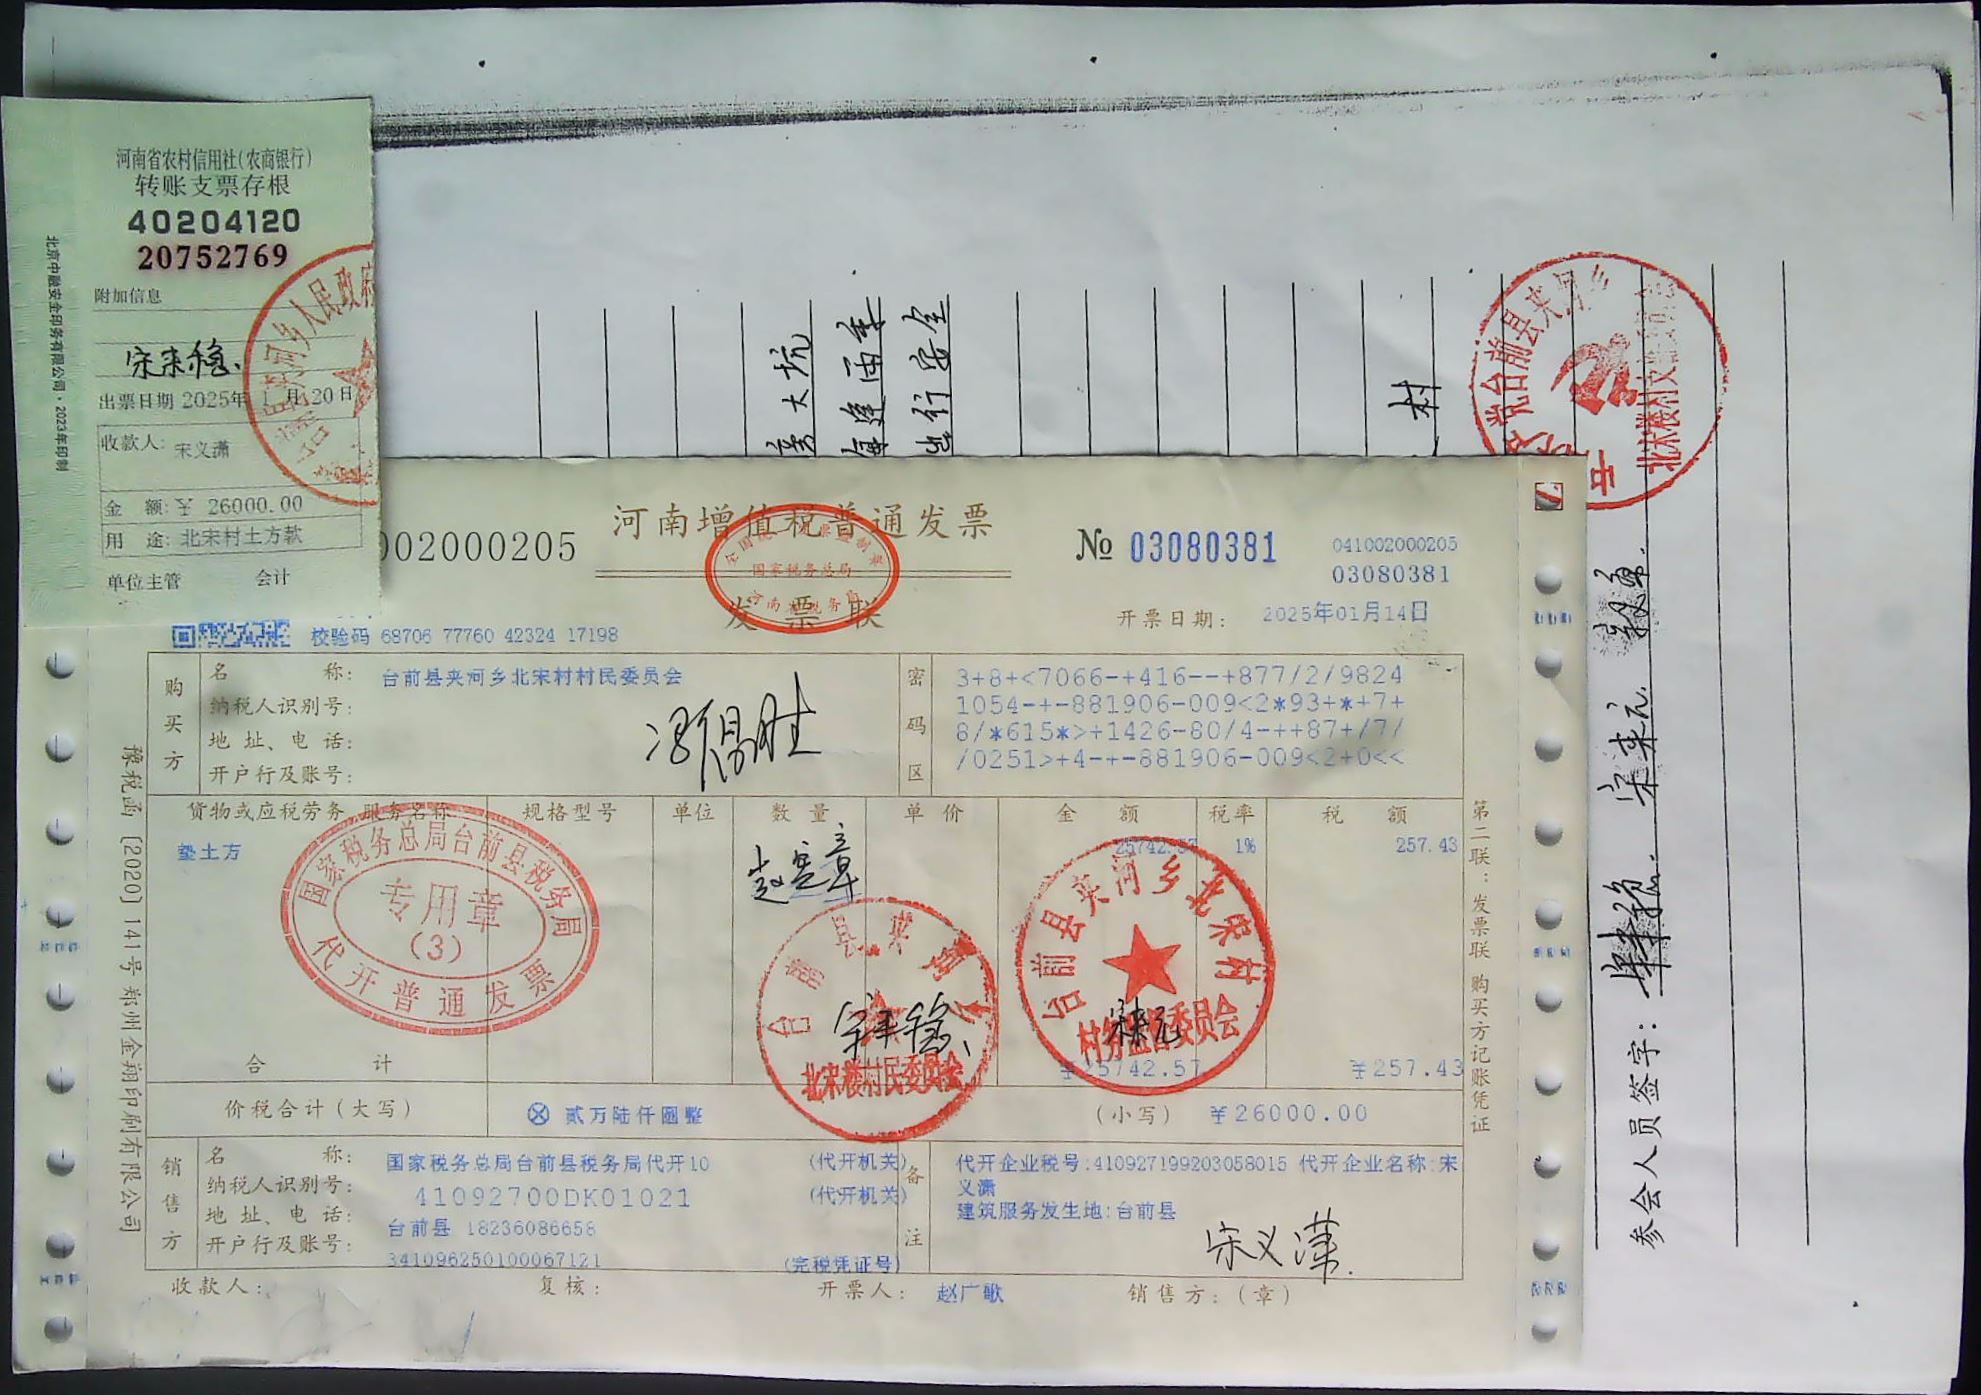 河南省农村信用社(农商银行)
转账支票存根
40204120
20752769
附加信息
宋来稳
出票日期 2025年 1 月20日
收款人: 宋义潇
金 额: ¥ 26000.00
用 途: 北宋村土方款
单位主管 会计
北京中融安全印务有限公司·2023年印制
002000205
河南增值税普通发票
发票联
国家税务总局
№ 03080381
041002000205
03080381
开票日期: 2025年01月14日
校验码 68706 77760 42324 17198
购买方
名 称: 台前县夹河乡北宋村村民委员会
纳税人识别号:
地 址、电 话:
开户行及账号:
密码区
3+8+<7066-+416--+877/2/9824
1054-+-881906-009<2*93+*+7+
8/*615*>+1426-80/4-++87+/7/
/0251>+4-+-881906-009<2+0<<
货物或应税劳务、服务名称 规格型号 单位 数 量 单 价 金 额 税率 税 额
垫土方 25742.57 1% 257.43
国家税务总局台前县税务局
专用章
(3)
代开普通发票
宋来稳
北宋楼村民委员会
台前县夹河乡
村务监督委员会
宋来元
合 计 ¥25742.57 ¥257.43
价税合计(大写) ⊗ 贰万陆仟圆整 (小写) ¥26000.00
销售方
名 称: 国家税务总局台前县税务局代开10 (代开机关)
纳税人识别号: 41092700DK01021 (代开机关)
地 址、电 话: 台前县 18236086658
开户行及账号: 341096250100067121 (完税凭证号)
备注
代开企业税号:410927199203058015 代开企业名称:宋
义潇
建筑服务发生地:台前县
宋义潇
收款人: 复核: 开票人: 赵广歌 销售方:(章)
豫税函〔2020〕141号郑州金翔印刷有限公司
第二联:发票联 购买方记账凭证
大坑
每逢雨季
出行安全
村
参会人员签字: 宋来稳 宋来元